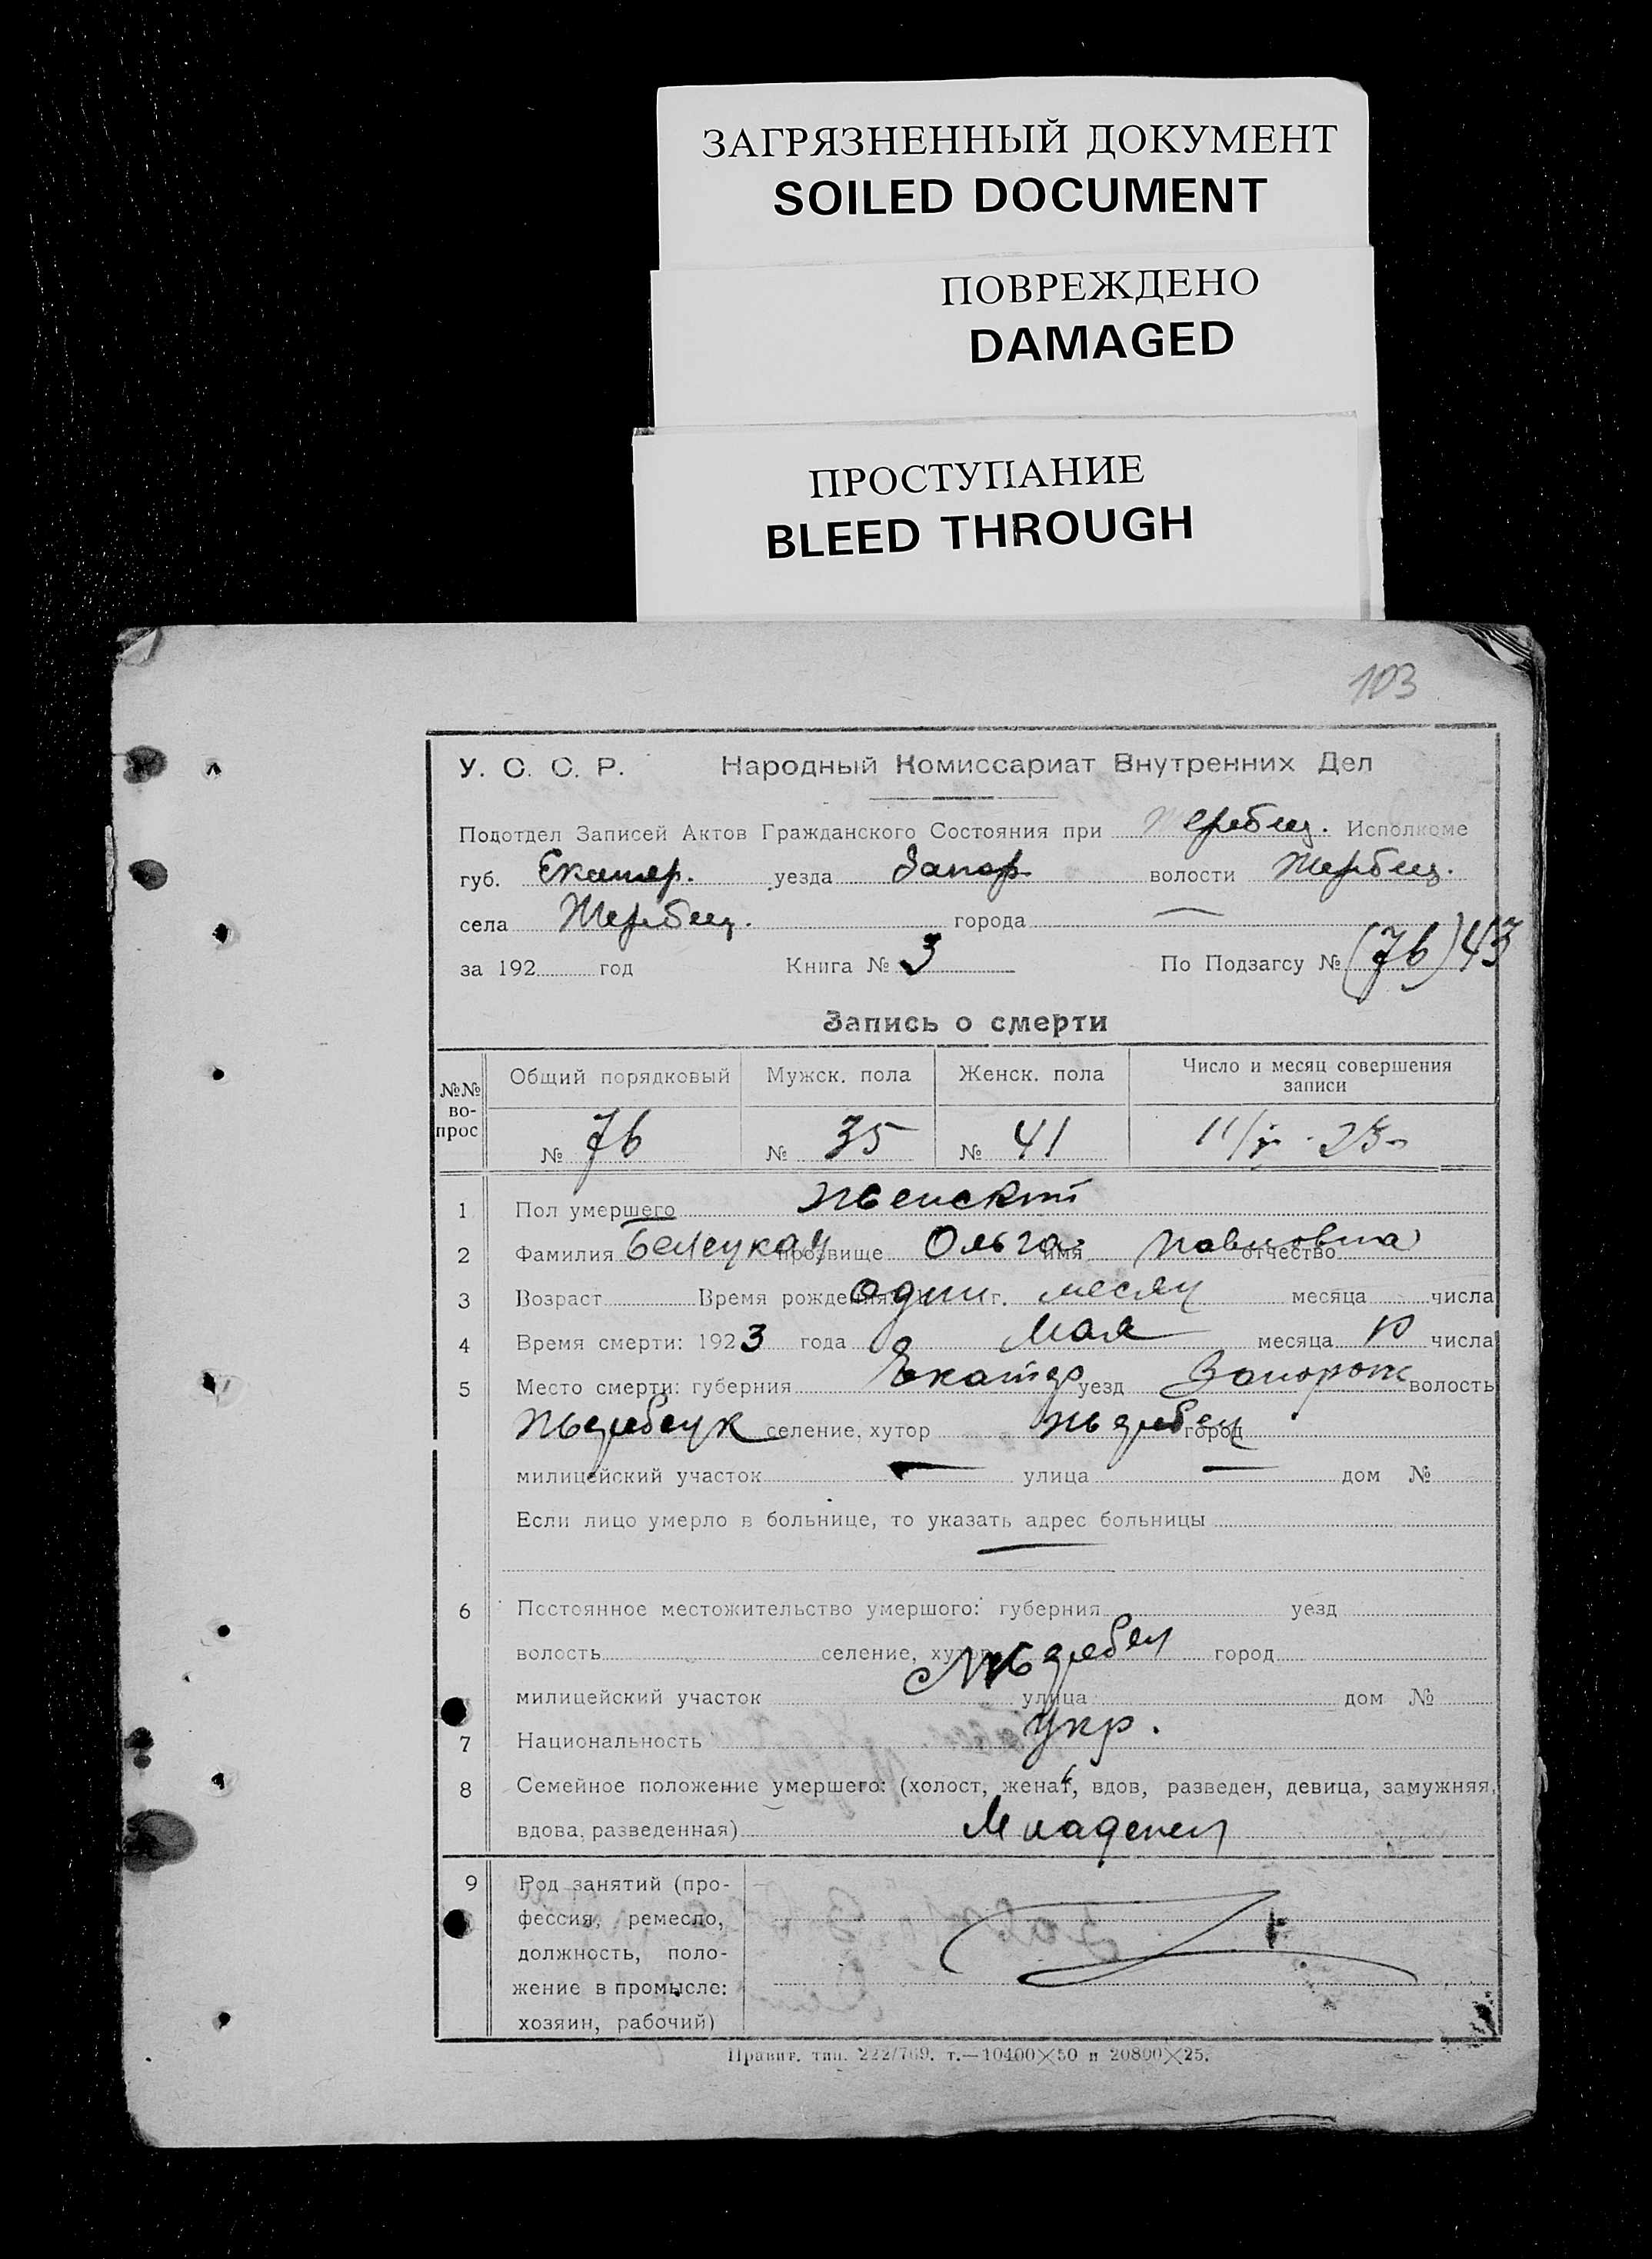 ЗАГРЯЗНЕННЫЙ ДОКУМЕНТ
SOILED DOCUMENT
ПОВРЕЖДЕНО
DAMAGED
ПРОСТУПАНИЕ
BLEED THROUGH
103
У. С. С. Р. Народный Комиссариат Внутренних Дел
Подотдел Записей Актов Гражданского Состояния при Жеребец. Исполкоме
губ. Екатер. уезда Запор. волости Жеребец.
села Жеребец. города —
за 192 год Книга № 3 По Подзагсу № (76) 43
Запись о смерти
№№ во- прос Общий порядковый Мужск. пола Женск. пола Число и месяц совершения записи
№ 76 № 35 № 41 11/V - 23
1 Пол умершего женский
2 Фамилия Белецкая прозвище Ольга имя Павловна отчество
3 Возраст Время рождения: один г. месяц месяца числа
4 Время смерти: 1923 года Мая месяца 10 числа
5 Место смерти: губерния Екатер уезд Запорож волость
Жеребецк селение, хутор Жеребец город
милицейский участок — улица — дом №
Если лицо умерло в больнице, то указать адрес больницы
—
6 Постоянное местожительство умершого: губерния уезд
волость селение, хутор Жеребец город
милицейский участок улица дом №
7 Национальность укр.
8 Семейное положение умершего: (холост, женат, вдов, разведен, девица, замужняя,
вдова, разведенная) Младенец
9 Род занятий (про-
фессия, ремесло,
должность, поло-
жение в промысле:
хозяин, рабочий)
Правит. тип. 222/769. т.—10400×50 и 20800×25.